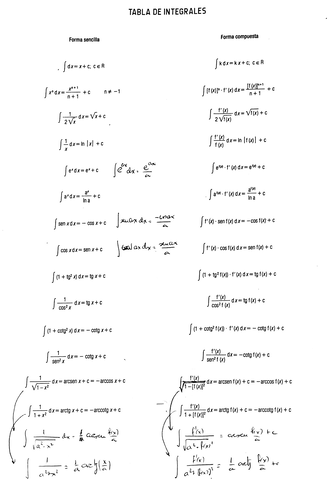 TABLA DE INTEGRALES
Forma sencilla
Forma compuesta
∫ dx = x + c; c ∈ R
∫ k dx = kx + c; c ∈ R
∫ xⁿ dx = xⁿ⁺¹/(n + 1) + c    n ≠ -1
∫ [f (x)]ⁿ · f' (x) dx = [f (x)]ⁿ⁺¹/(n + 1) + c
∫ 1/(2√x) dx = √x + c
∫ f' (x)/(2√f (x)) dx = √f (x) + c
∫ 1/x dx = ln |x| + c
∫ f' (x)/f (x) dx = ln |f (x)| + c
∫ eˣ dx = eˣ + c    ∫ e^(ax) dx = e^(ax)/a
∫ e^f(x) · f' (x) dx = e^f(x) + c
∫ aˣ dx = aˣ/ln a + c
∫ a^f(x) · f' (x) dx = a^f(x)/ln a + c
∫ sen x dx = - cos x + c    ∫ sin ax dx = -cos ax/a
∫ f' (x) · sen f (x) dx = -cos f (x) + c
∫ cos x dx = sen x + c    ∫ cos ax dx = sin ax/a
∫ f' (x) · cos f (x) dx = sen f (x) + c
∫ (1 + tg² x) dx = tg x + c
∫ (1 + tg² f (x)) · f' (x) dx = tg f (x) + c
∫ 1/cos² x dx = tg x + c
∫ f' (x)/cos² f (x) dx = tg f (x) + c
∫ (1 + cotg² x) dx = - cotg x + c
∫ (1 + cotg² f (x)) · f' (x) dx = -cotg f (x) + c
∫ 1/sen² x dx = - cotg x + c
∫ f' (x)/sen² f (x) dx = -cotg f (x) + c
∫ 1/√(1 - x²) dx = arcsen x + c = -arccos x + c
∫ f' (x)/√(1 - [f (x)]²) dx = arcsen f (x) + c = -arccos f (x) + c
∫ 1/(1 + x²) dx = arctg x + c = -arccotg x + c
∫ f' (x)/(1 + [f (x)]²) dx = arctg f (x) + c = -arccotg f (x) + c